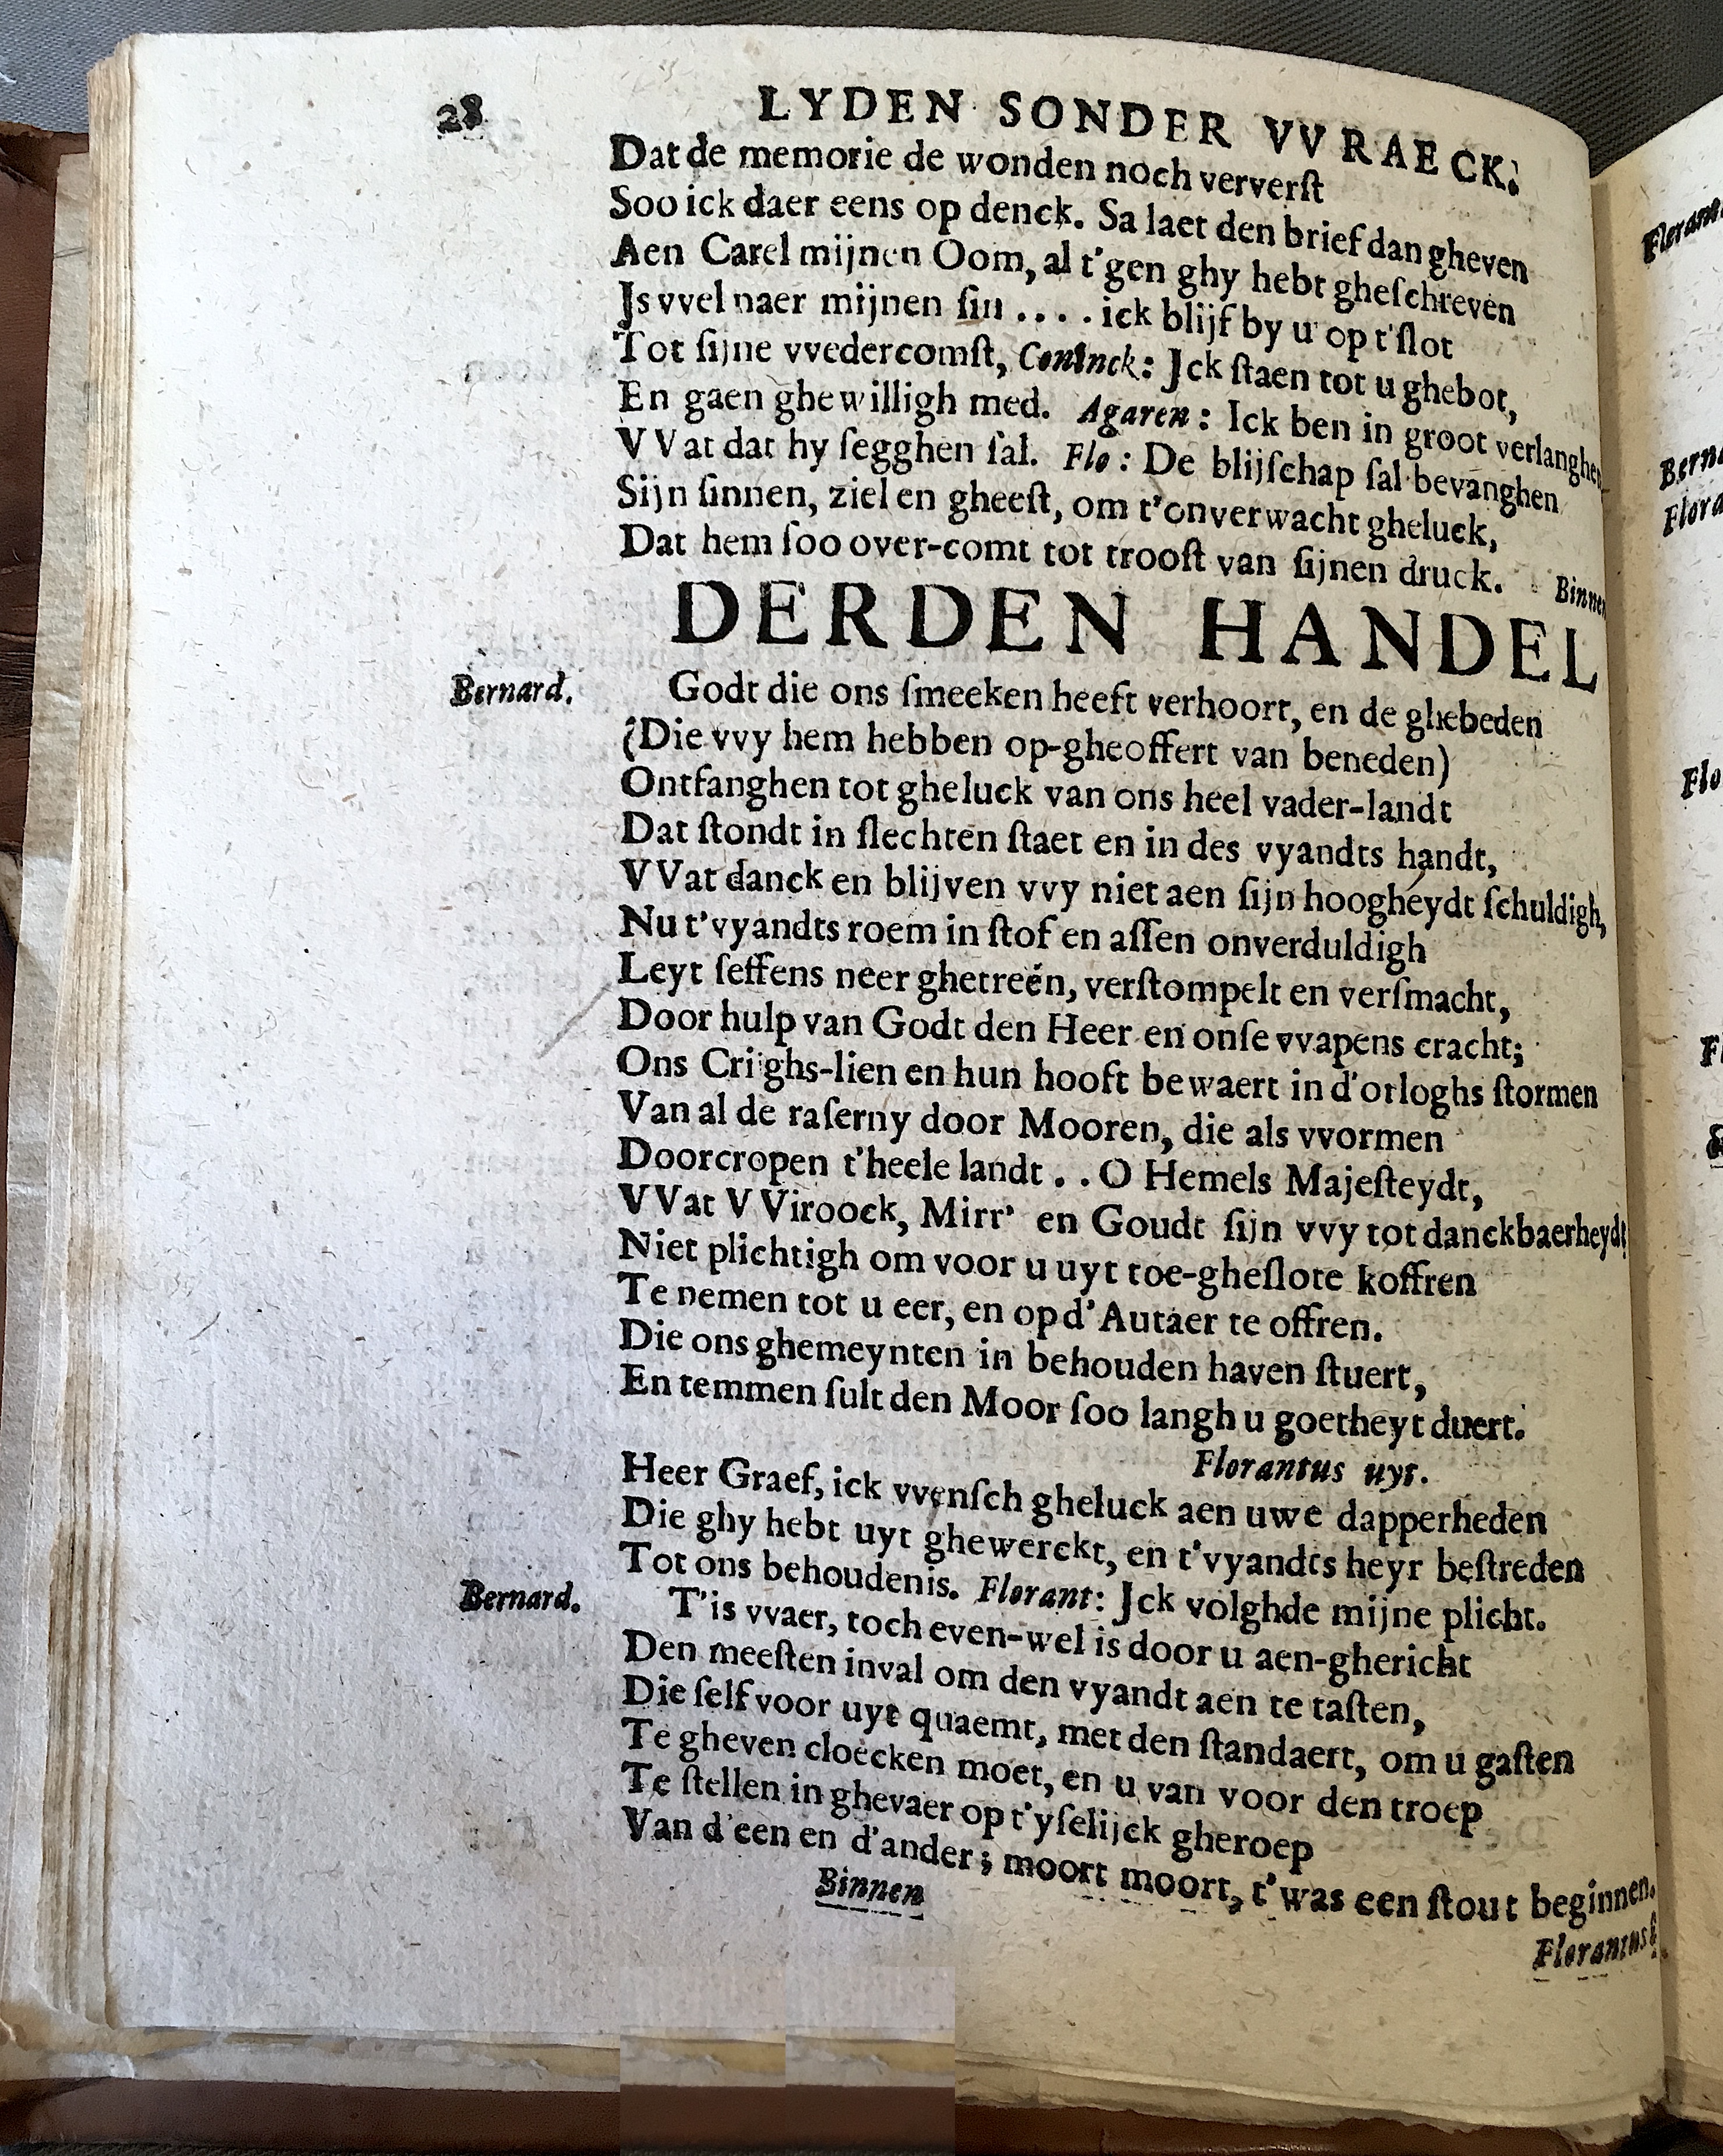 28 LYDEN SONDER VVRAECK.
Dat de memorie de wonden noch ververſt
Soo ick daer eens op denck. Sa laet den brief dan gheven
Aen Carel mijnen Oom, al t'gen ghy hebt gheſchreven
Js vvel naer mijnen ſin .... ick blijf by u op t'ſlot
Tot ſijne vvedercomſt, Coninck: Jck ſtaen tot u ghebot,
En gaen ghewilligh med. Agaren: Ick ben in groot verlanghen
VVat dat hy ſegghen ſal. Flo: De blijſchap ſal bevanghen
Sijn ſinnen, ziel en gheeſt, om t'onverwacht gheluck,
Dat hem ſoo over-comt tot trooſt van ſijnen druck. Binnen
DERDEN HANDEL
Bernard. Godt die ons ſmeeken heeft verhoort, en de ghebeden
(Die vvy hem hebben op-gheoffert van beneden)
Ontfanghen tot gheluck van ons heel vader-landt
Dat ſtondt in ſlechten ſtaet en in des vyandts handt,
VVat danck en blijven vvy niet aen ſijn hoogheydt ſchuldigh,
Nu t'vyandts roem in ſtof en aſſen onverduldigh
Leyt ſeffens neer ghetreên, verſtompelt en verſmacht,
Door hulp van Godt den Heer en onſe vvapens cracht;
Ons Crijghs-lien en hun hooft bewaert in d'orloghs ſtormen
Van al de raſerny door Mooren, die als vvormen
Doorcropen t'heele landt .. O Hemels Majeſteydt,
VVat VViroock, Mirr' en Goudt ſijn vvy tot danckbaerheydt
Niet plichtigh om voor u uyt toe-gheſlote koffren
Te nemen tot u eer, en op d'Autaer te offren.
Die ons ghemeynten in behouden haven ſtuert,
En temmen ſult den Moor ſoo langh u goetheyt duert.
Florantus uyt.
Heer Graef, ick vvenſch gheluck aen uwe dapperheden
Die ghy hebt uyt ghewerckt, en t'vyandts heyr beſtreden
Tot ons behoudenis. Florant: Jck volghde mijne plicht.
Bernard. T'is vvaer, toch even-wel is door u aen-ghericht
Den meeſten inval om den vyandt aen te taſten,
Die ſelf voor uyt quaemt, met den ſtandaert, om u gaſten
Te gheven cloecken moet, en u van voor den troep
Te ſtellen in ghevaer op t'yſelijck gheroep
Van d'een en d'ander; moort moort, t'was een ſtout beginnen.
Binnen
Florantus
Bern
Flora
Flo